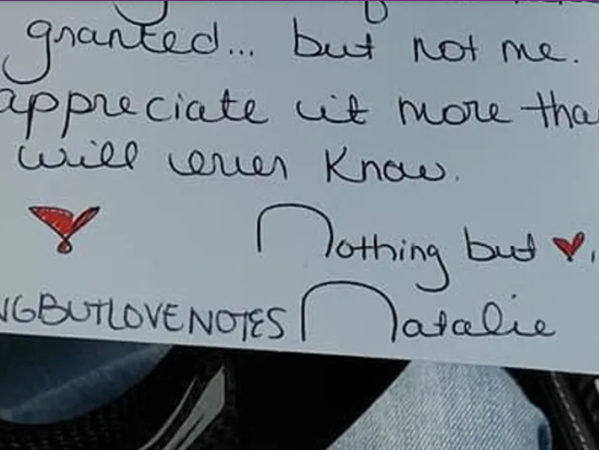 granted... but not me.
appreciate it more tha
will ever know.
Nothing but ♥,
NGBUTLOVENOTES Natalie